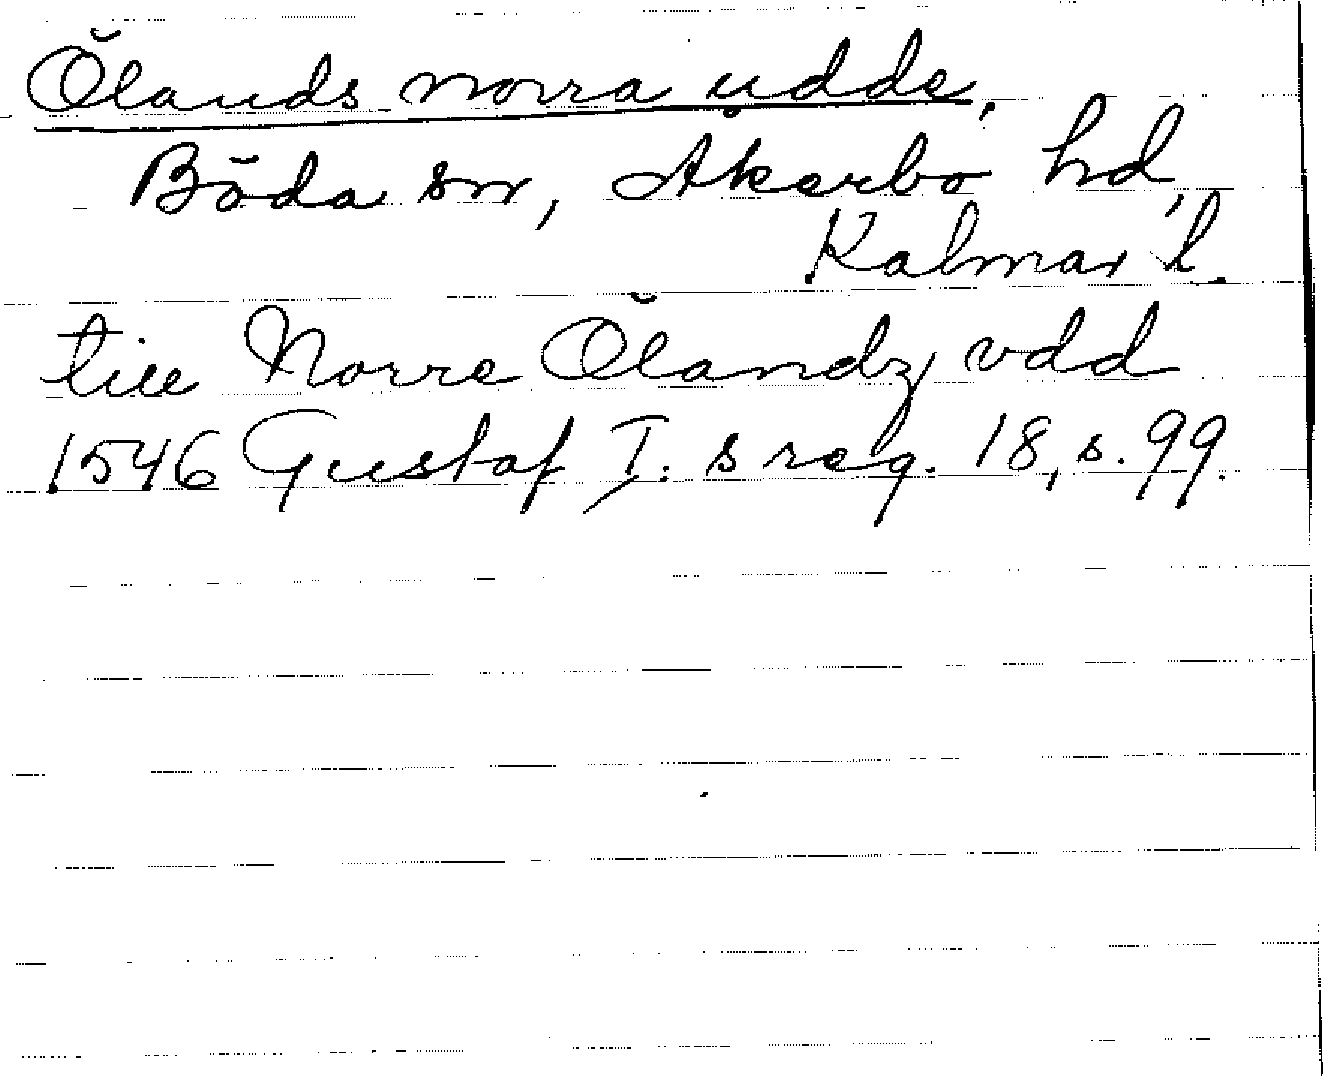 Ölands norra udde,
Böda sn, Åkerbo hd,
Kalmar l.
till Norre Ölandz vdd
1546 Gustaf I:s reg. 18, s. 99.